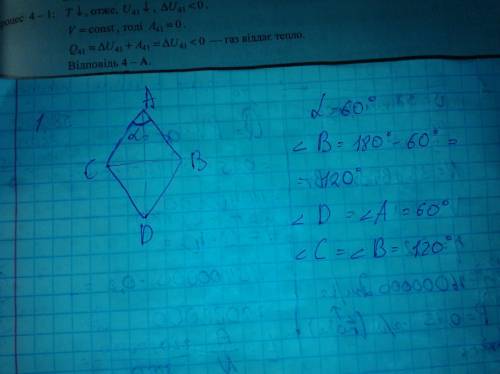 роцес 4 – 1: T↓, отже, U₄₁↓, ΔU₄₁ < 0.
V = const, тоді A₄₁ = 0.
Q₄₁ = ΔU₄₁ + A₄₁ = ΔU₄₁ < 0 — газ віддає тепло.
Відповідь 4 – А.
1.
A
α
C
B
D
α = 60°
∠ B = 180° - 60° =
= 120°
∠ D = ∠ A = 60°
∠ C = ∠ B = 120°